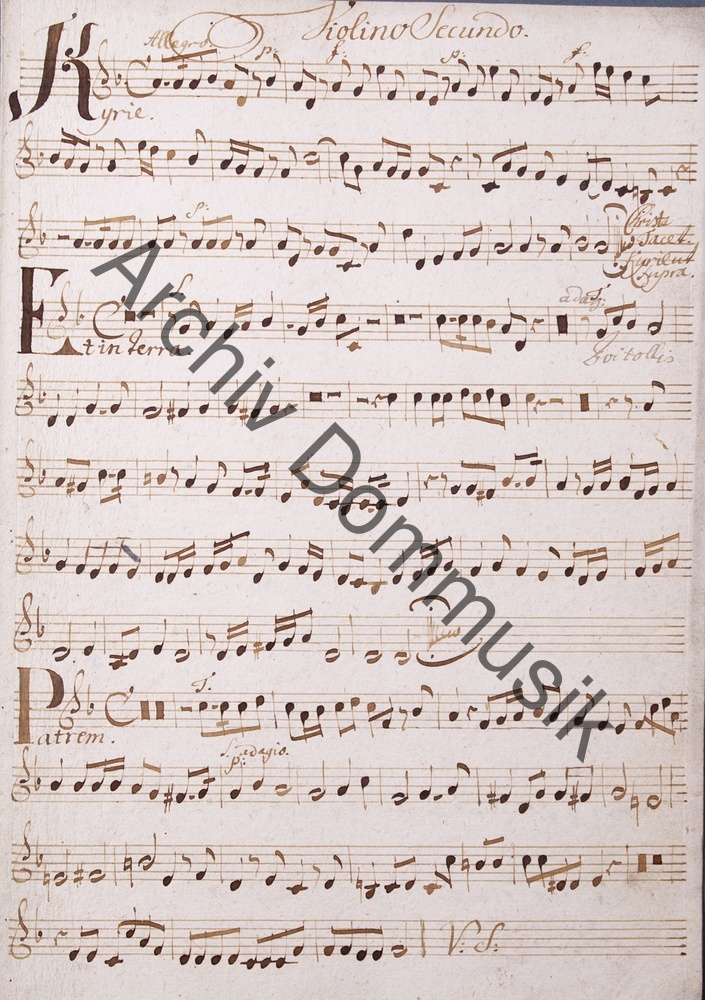 Violino Secundo.
Allegro
p: f: p: f.
Kyrie.
p:
Christe
Tacet.
Kyrie ut
Supra.
f.
adag:
Et in terra.
Qui tollis
f.
Patrem.
f. adagio.
p:
V: S:
Archiv Dommusik